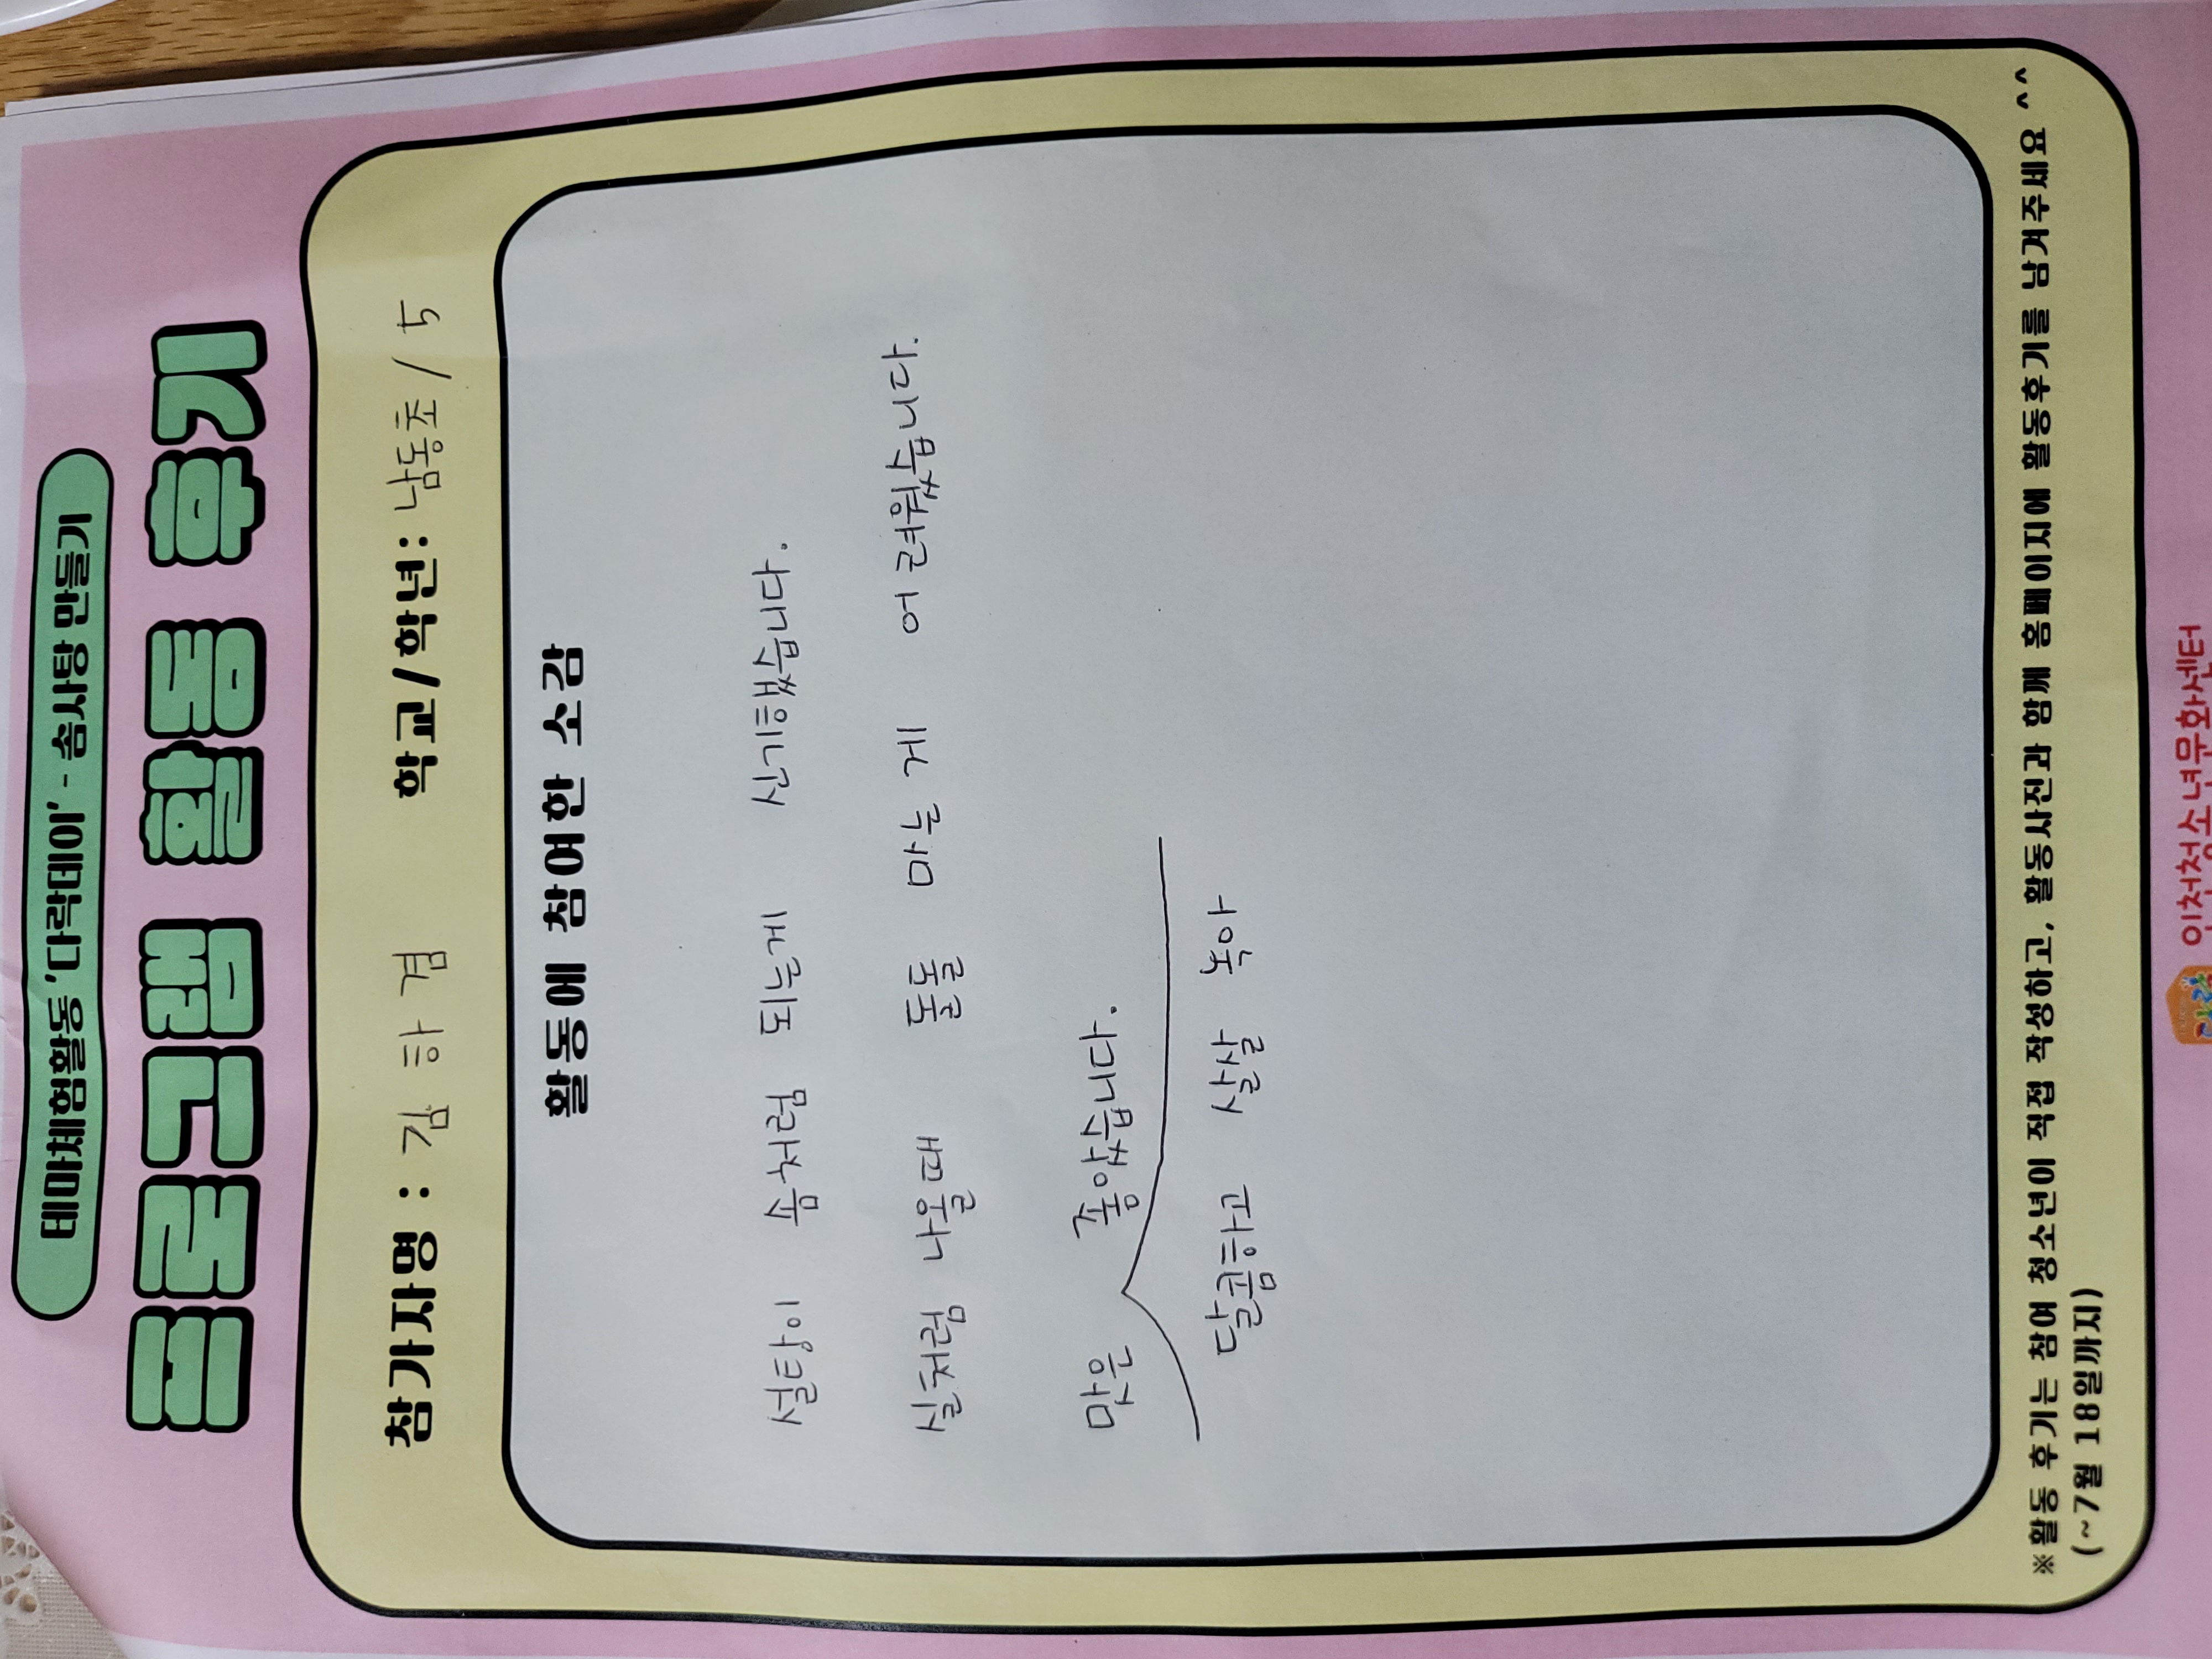 테마체험활동 '다락데이' - 솜사탕 만들기
프로그램 활동 후기
참가자명 : 김하겸 학교/학년: 남동초 / 5
활동에 참여한 소감
설탕이 솜처럼 되는게 신기했습니다.
실처럼 나올때 돌돌 마는게 어려웠습니다.
좋았습니다.
달콤하고 살살 녹아
※활동 후기는 참여 청소년이 직접 작성하고, 활동사진과 함께 홈페이지에 활동후기를 남겨주세요 ^^
(~7월 18일까지)
인천청소년문화센터